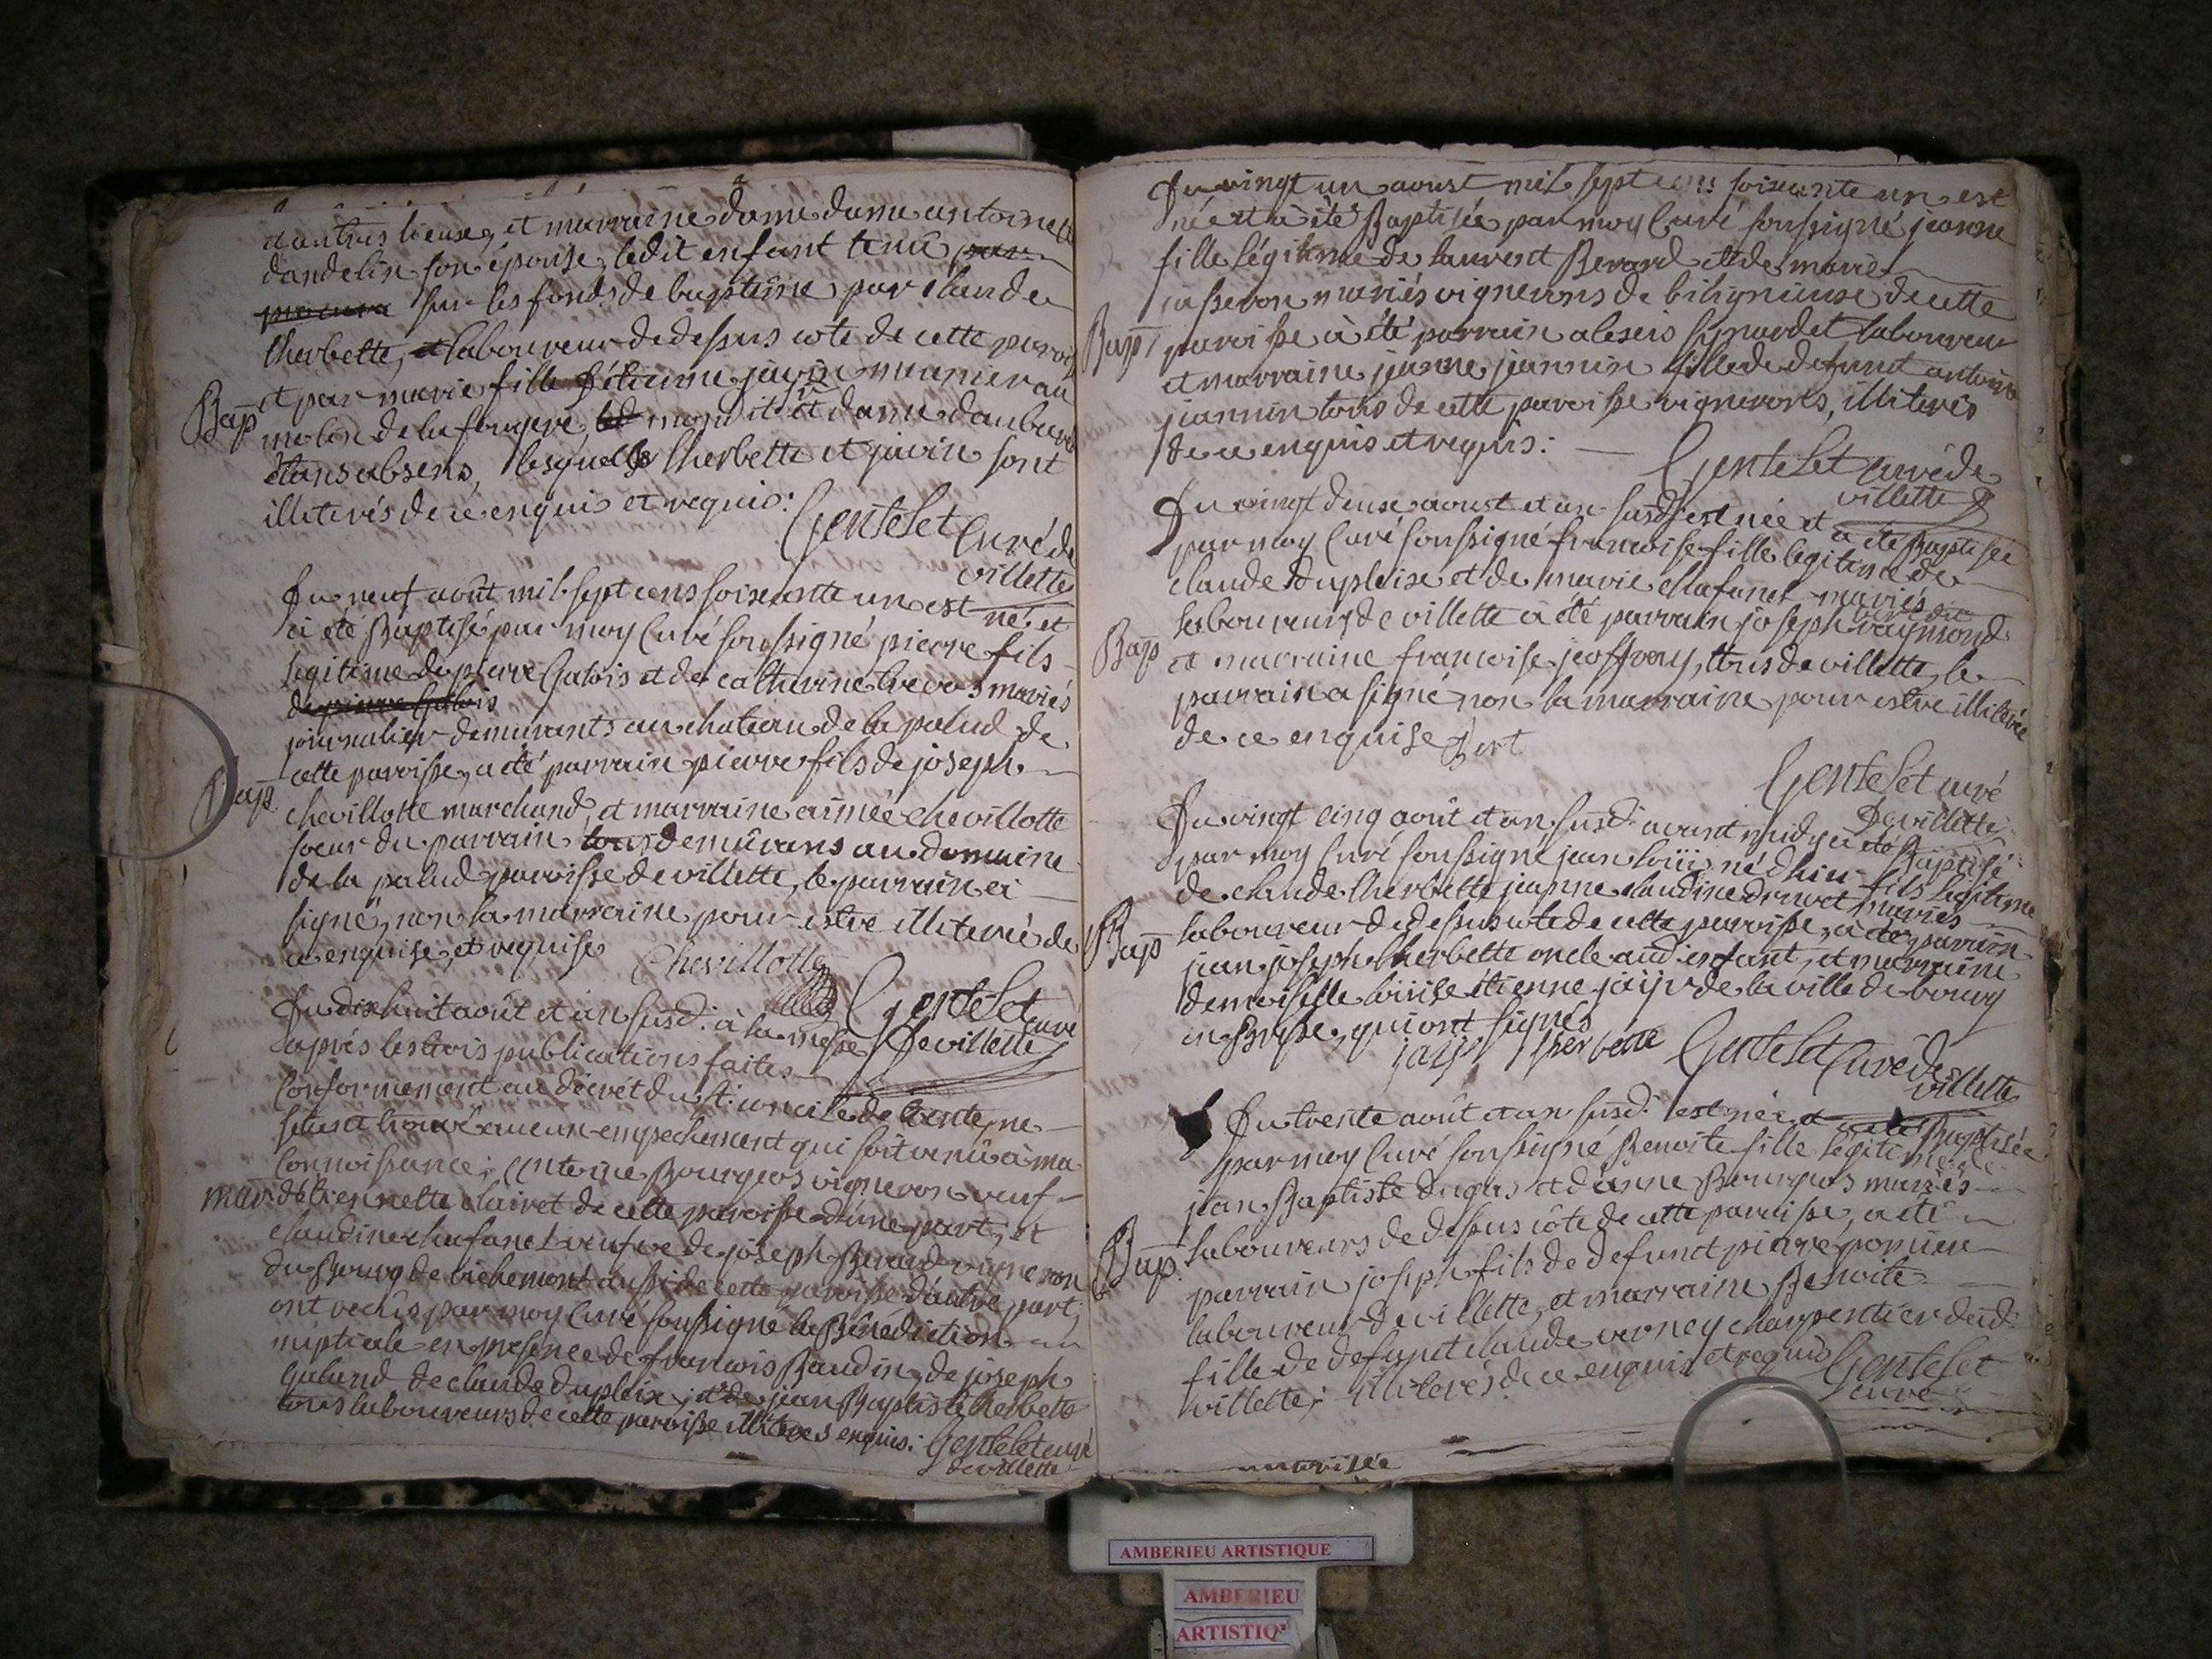 et autres lieux, et marraine dame dame antoinette
dandelin son épouse, ledit enfant tenû par
procura sur les fonds de baptême par claude
lherbette, et laboureur de dessus cote de cette paroisse
et par marie fille d'étienne javin meunier au
Bap
molin de la forugere, led monsr. et dame daubarede
étans absens, lesquells lherbette et javin sont
illiterés de ce enquis et requis:
Gentelet Curé de
villette
Du neuf août mil sept cens soixante un est né et
a été Baptisé par moy Curé soussigné pierre fils
legitime de pierre Galois et de catherine mariés
de pierre Galois
journalier demurants au chateau de la palud de
cette paroisse, a été parrain pierre fils de joseph
Bap
chevillotte marchand, et marraine aimée chevillotte
soeur du parrain tous demûrans au domaine
de la palud paroisse de villette, le parrain a
signé, non la marraine pour estre illiterée de
ce enquise et requise
Chevillotte
Gentelet curé
De villette
Du dixhuit août et an susd. à la messe
après les trois publications faites
Conformement au décrét du st. concile de trente, ne
sétant trouvé aucun empechement qui soit venû à ma
Connoissance; antoine Bourgeois vigneron veuf
mar d'étiennette clairet de cette paroisse d'une part, et
claudine chafanet veufve de joseph Berard vigneron
du Bourg de richemont aussi de cette paroisse d'autre part,
ont reçûs par moy Curé soussigné la Bénédiction
nuptiale en présence de francois Baudin, de joseph
Galand de claude dupleix, et de jean Baptiste lherbette
tous laboureurs de cette paroisse illiterés enquis: Gentelet curé
de villette
Du vingt un aoust mil sept cens soixante un est
née et à été Baptisée par moy Curé soussigné jeanne
fille légitime de laurent Berard et de marie
jasseron mariés vignerons de bilignieuse de cette
Bap
paroisse à été parrain alexis symardet laboureur
et marraine jeanne jeannin fille de defunct antoine
jeannin tous de cette paroisse vignerons, illiterés
de ce enquis et requis:
Gentelet curé de
villette
Du vingt deux aoust et an susd. est née et a été Baptisée
par moy Curé soussigné francoise fille legitime de
claude dupleix et de marie chafanet mariés
laboureurs de villette à été parrain joseph raymond
Bap
et marraine francoise jeoffray, tous de villette, le
parrain a signé non la marraine pour estre illiterée
de ce enquise
Gentelet curé
De villette
Du vingt cinq août et an susd. avant midy a été Baptisé
par moy Curé soussigné jean loüis né d'hier fils legitime
de claude lherbette jeanne claudine druet mariés
laboureur de dessus cote de cette paroisse, a été parrain
Bap
jean joseph lherbette oncle aud. enfant, et marraine
demoiselle loüise étienne jaÿr de la ville de bourg
en Bresse, qui ont signés
jaÿr lherbette Gentelet Curé de
villette
Du trente août et an susd. est née et a été Baptisée
par moy Curé soussigné Benoite fille légitime de
jean Baptiste dugas et d'anne Bourgeois mariés
laboureurs de dessus côte de cette paroisse, a été
Bap
parrain joseph fils de defunct pierre
laboureur de villette, et marraine Benoite
fille de defunct claude verney charpentier dud.
villette; illiterés de ce enquis et requis Gentelet
curé
AMBERIEU ARTISTIQUE
AMBERIEU
ARTISTIQ